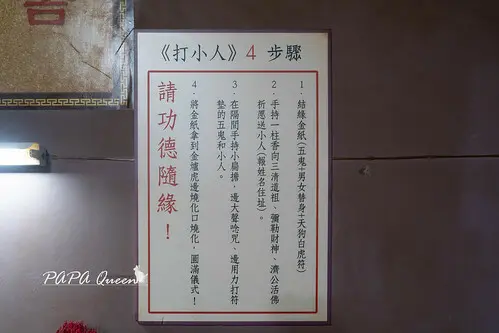 《打小人》4 步驟
1．結緣金紙(五鬼+男女替身+天狗白虎符)
2．手持一柱香向三清道祖、彌勒財神、濟公活佛
祈愿送小人(報姓名住址)。
3．在陽間手持小扁擔，邊大聲唸咒、邊用力打符
墊的五鬼和小人。
4．將金紙拿到金爐虎邊燒化口燒化，圓滿儀式！
請功德隨緣！
PAPA Queen